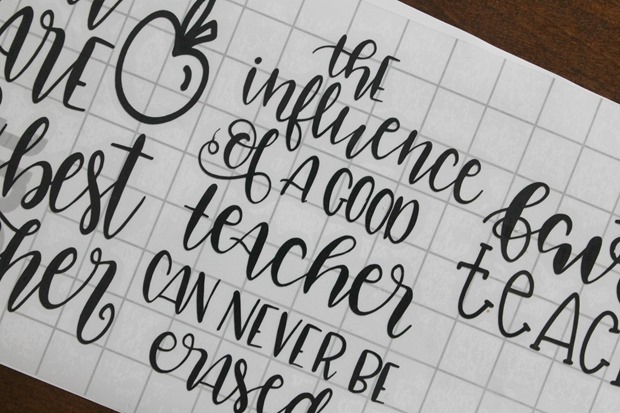 ARE
best
her
the
influence
of A GOOD
teacher
CAN NEVER BE
erased